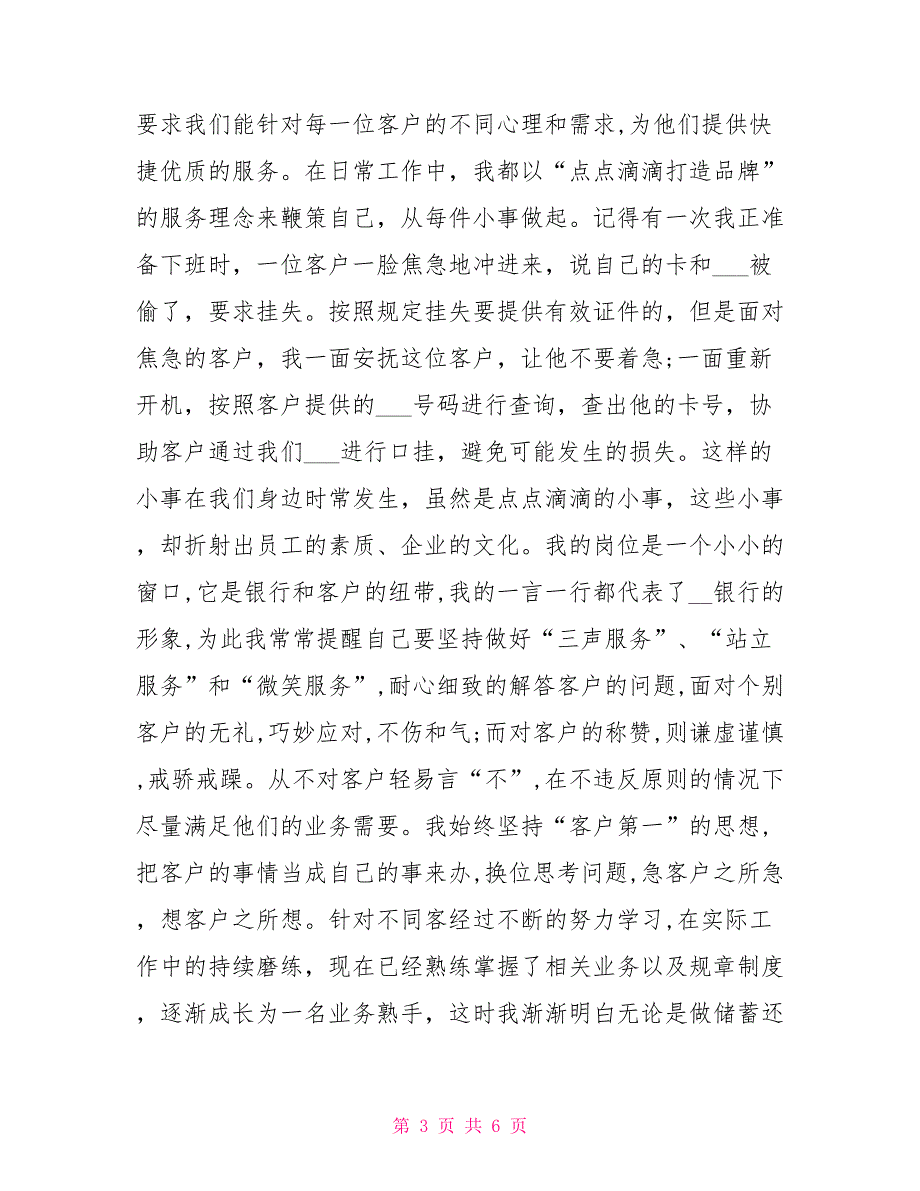 要求我们能针对每一位客户的不同心理和需求,为他们提供快
捷优质的服务。在日常工作中，我都以“点点滴滴打造品牌”
的服务理念来鞭策自己，从每件小事做起。记得有一次我正准
备下班时，一位客户一脸焦急地冲进来，说自己的卡和___被
偷了，要求挂失。按照规定挂失要提供有效证件的，但是面对
焦急的客户，我一面安抚这位客户，让他不要着急;一面重新
开机，按照客户提供的___号码进行查询，查出他的卡号，协
助客户通过我们___进行口挂，避免可能发生的损失。这样的
小事在我们身边时常发生，虽然是点点滴滴的小事，这些小事
，却折射出员工的素质、企业的文化。我的岗位是一个小小的
窗口,它是银行和客户的纽带,我的一言一行都代表了__银行的
形象,为此我常常提醒自己要坚持做好“三声服务”、“站立
服务”和“微笑服务”,耐心细致的解答客户的问题,面对个别
客户的无礼,巧妙应对,不伤和气;而对客户的称赞,则谦虚谨慎
,戒骄戒躁。从不对客户轻易言“不”,在不违反原则的情况下
尽量满足他们的业务需要。我始终坚持“客户第一”的思想,
把客户的事情当成自己的事来办,换位思考问题,急客户之所急
，想客户之所想。针对不同客经过不断的努力学习,在实际工
作中的持续磨练，现在已经熟练掌握了相关业务以及规章制度
，逐渐成长为一名业务熟手，这时我渐渐明白无论是做储蓄还
第 3 页 共 6 页